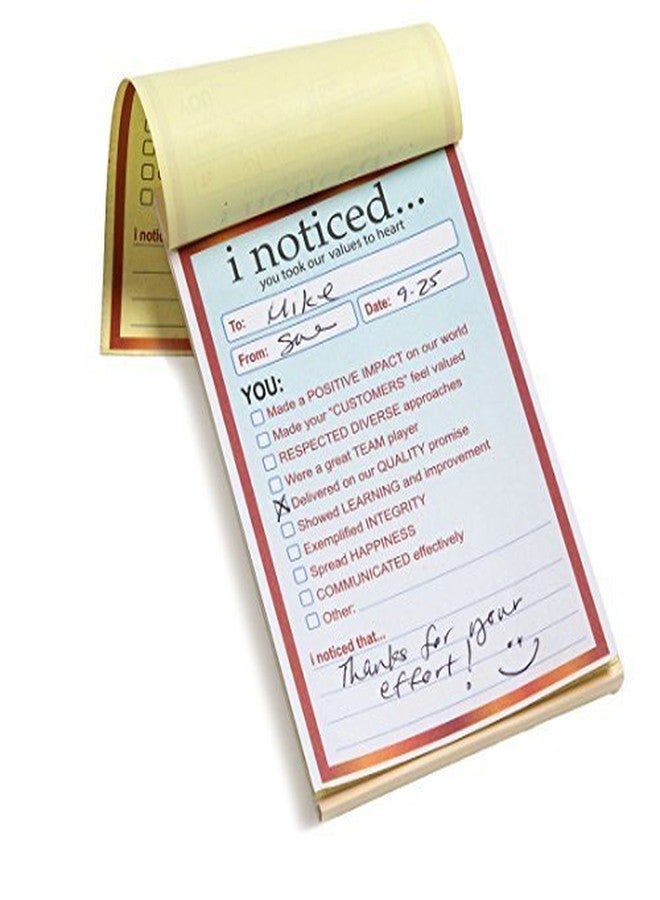 i noticed...
you took our values to heart
To: Mike
From: Sue
Date: 9-25
YOU:
Made a POSITIVE IMPACT on our world
Made your "CUSTOMERS" feel valued
RESPECTED DIVERSE approaches
Were a great TEAM player
Delivered on our QUALITY promise
Showed LEARNING and improvement
Exemplified INTEGRITY
Spread HAPPINESS
COMMUNICATED effectively
Other:
i noticed that...
Thanks for your
effort!
i notic